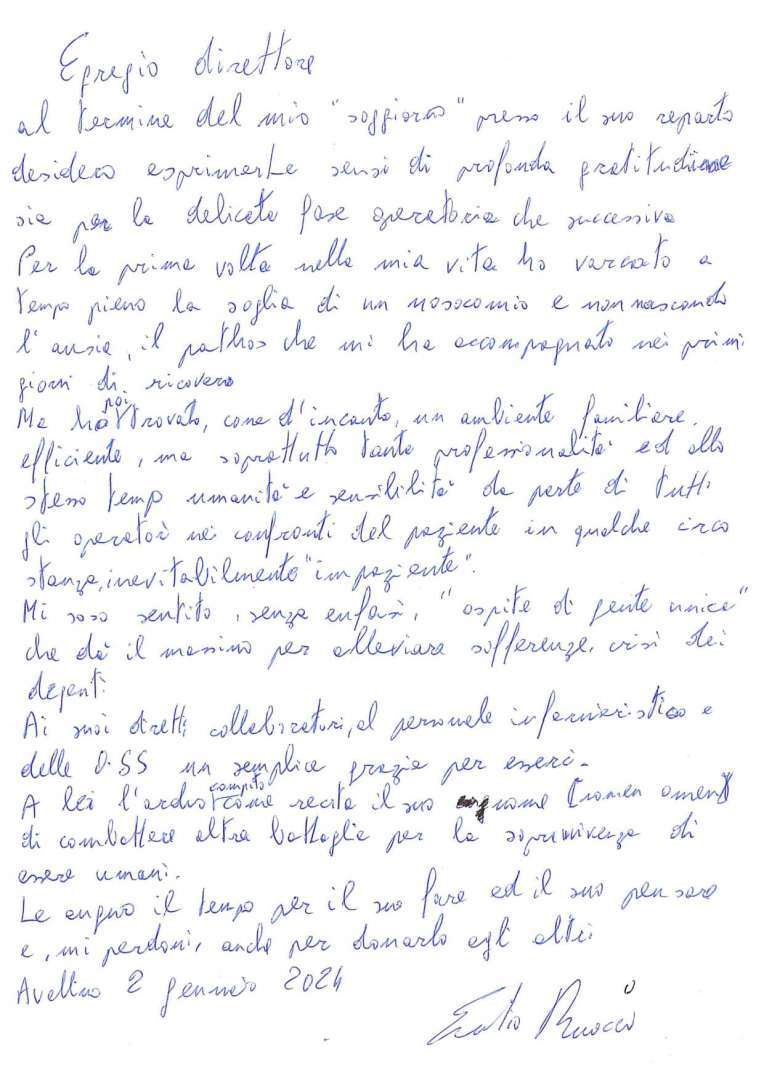 Egregio direttore
al termine del mio "soggiorno" presso il suo reparto
desidero esprimerLe sensi di profonda gratitudine
sia per la delicata fase operatoria che successiva
Per la prima volta nella mia vita ho varcato a
tempo pieno la soglia di un nosocomio e non nascondo
l'ansia, il pathos che mi ha accompagnato nei primi
giorni di ricovero
Ma ho poi trovato, come d'incanto, un ambiente familiare,
efficiente, ma soprattutto tanta professionalità ed allo
stesso temp umanità e sensibilità da parte di tutti
gli operatori nei confronti del paziente in qualche circo
stanza, inevitabilmente "impaziente".
Mi sono sentito, senza enfasi, "ospite di gente unica"
che dà il massimo per alleviare sofferenze, crisi dei
degenti.
Ai suoi diretti collaboratori, al personale infermieristico e
delle O.SS un semplice grazie per esserci.
A lei l'arduo compito come recita il suo nome (nomen omen)
di combattere altra battaglia per la sopravvivenza di
essere umani.
Le auguro il tempo per il suo fare ed il suo pensare
e, mi perdoni, anche per donarlo agli altri
Avellino 2 gennaio 2024
Ruocco